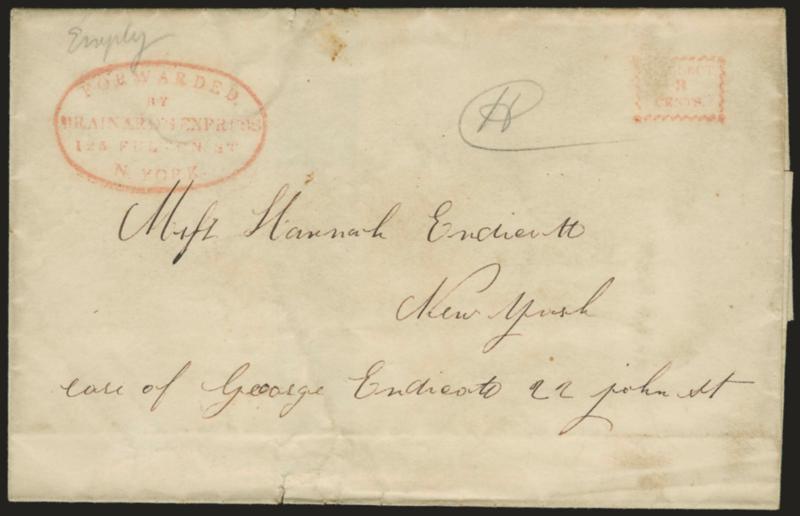 Empty
FORWARDED.
BY
BRAINARD'S EXPRESS
125 FULTON ST
N. YORK.
COLLECT
8
CENTS.
H
Miss Hannah Endicott
New York
care of George Endicott 22 john st